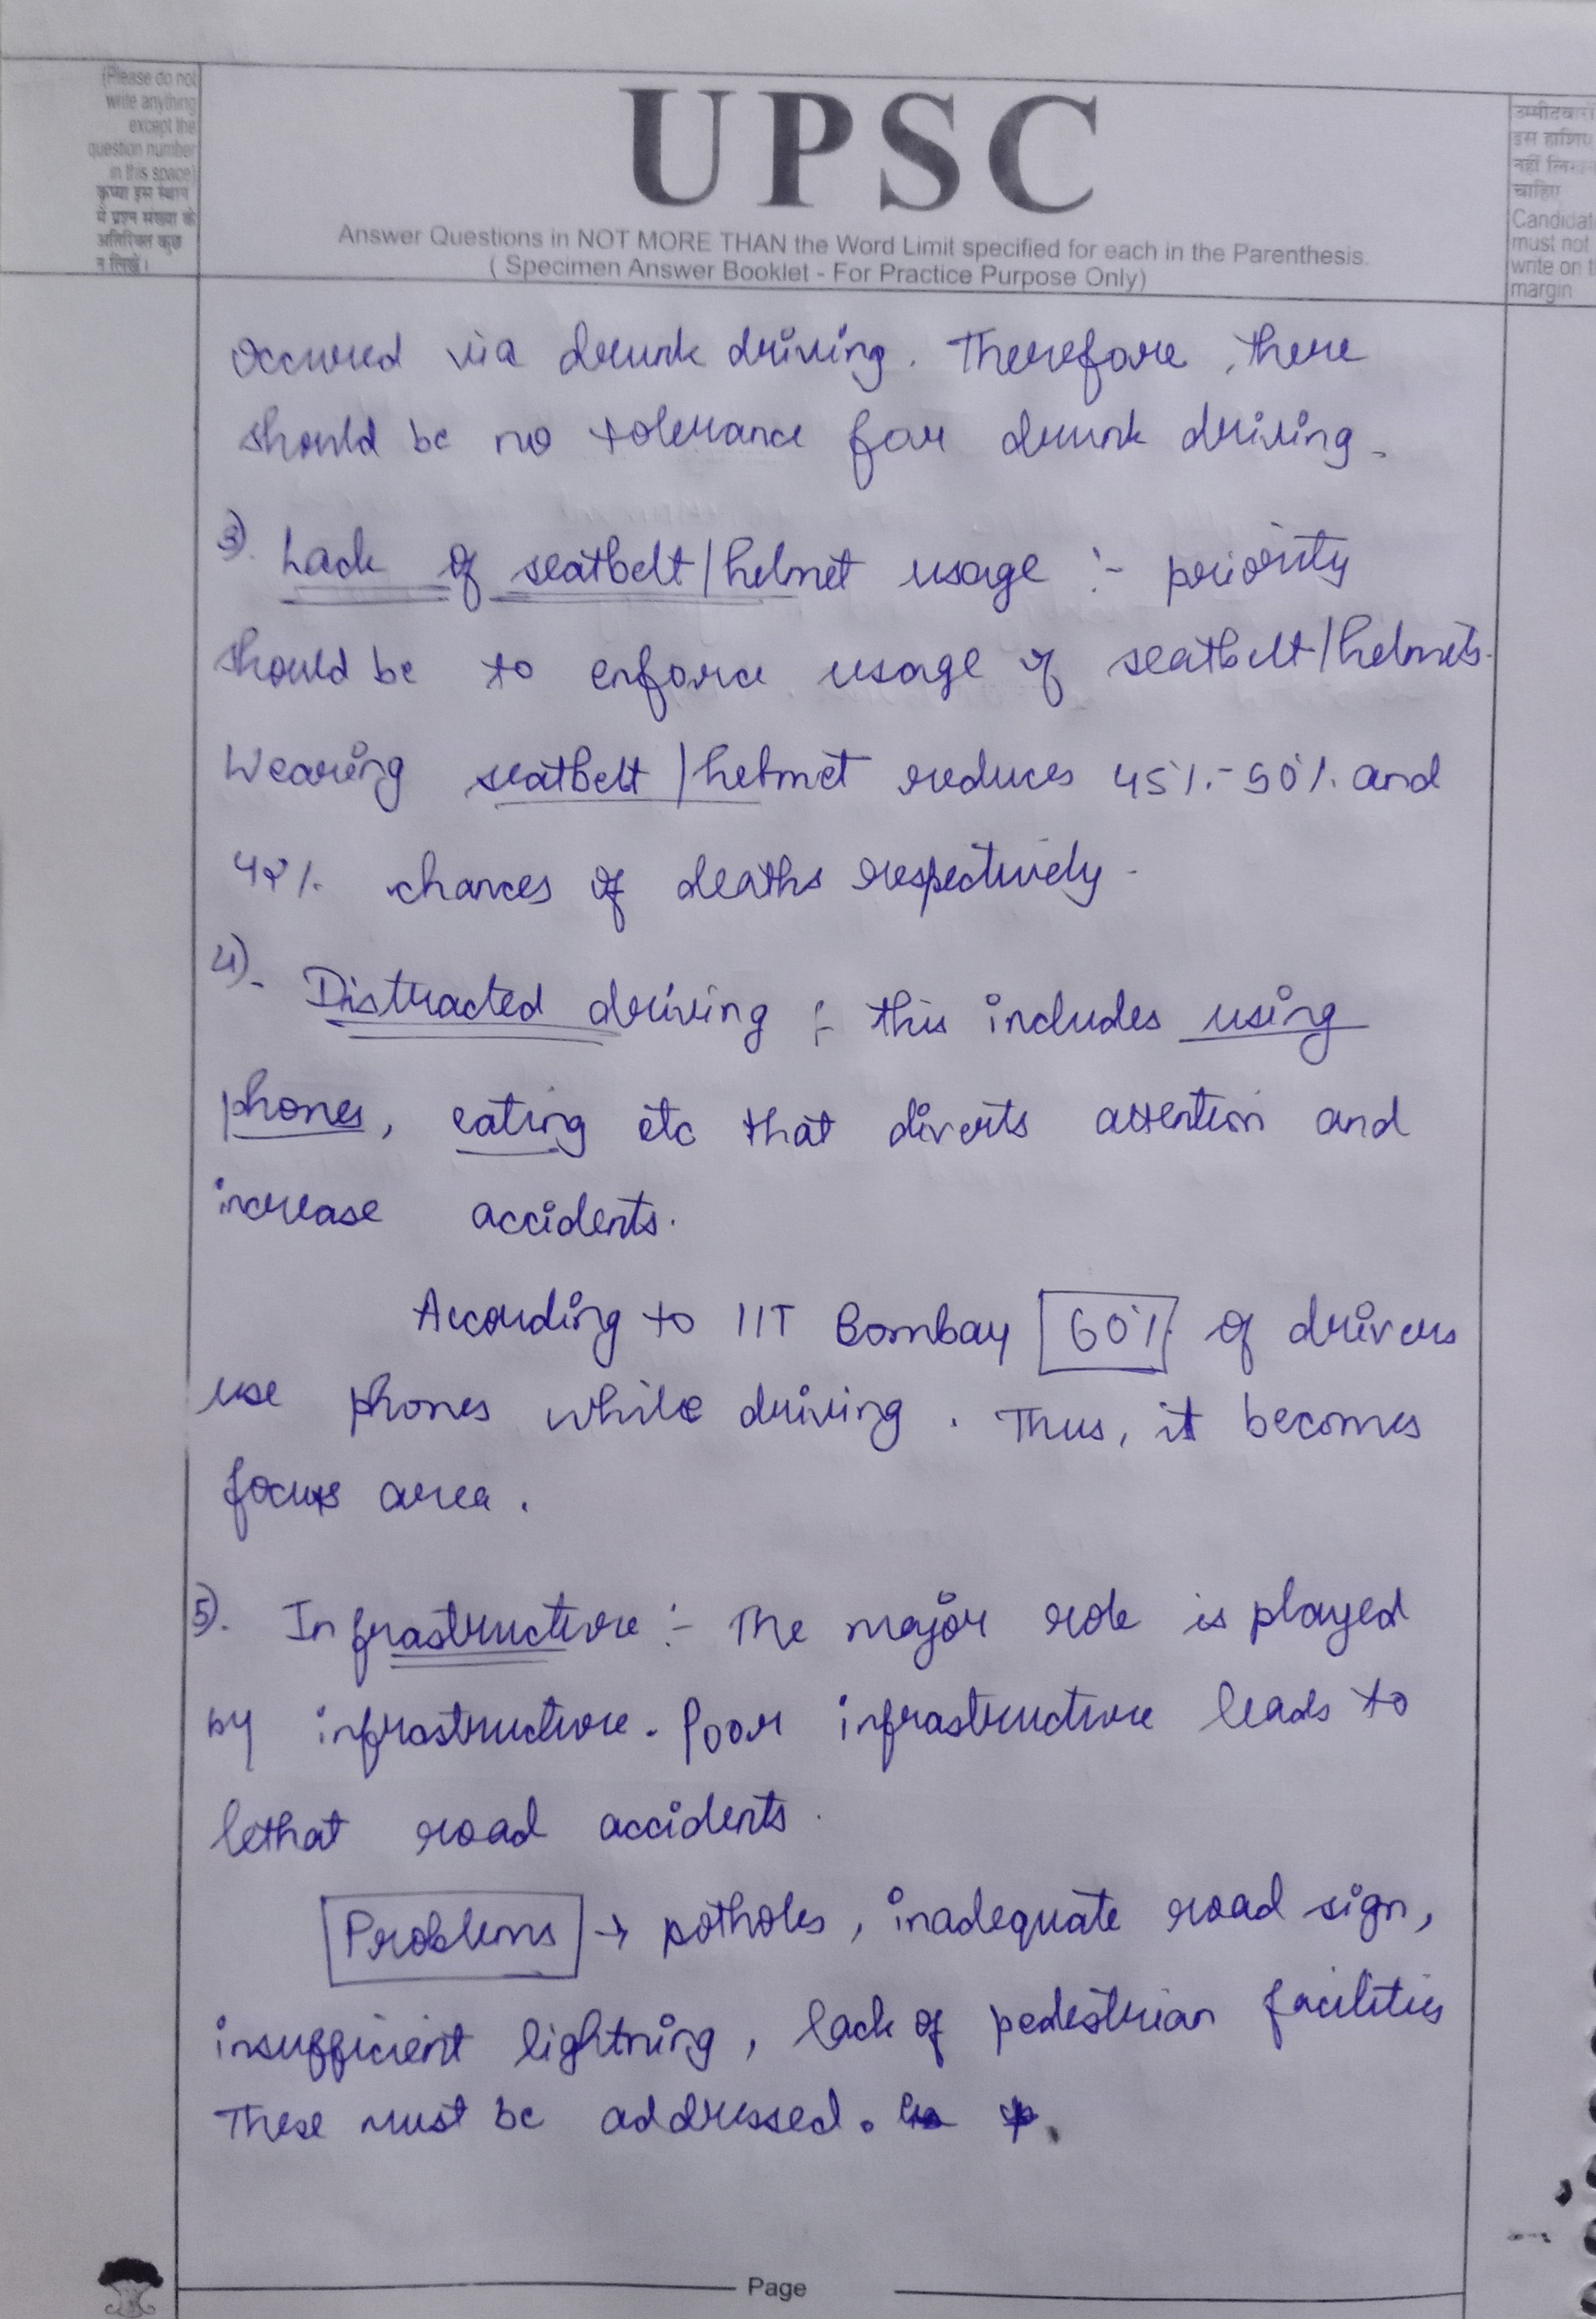 (Please do not
write anything
except the
question number
in this space)
कृपया इस स्थान
में प्रश्न संख्या के
अतिरिक्त कुछ
न लिखें।
UPSC
Answer Questions in NOT MORE THAN the Word Limit specified for each in the Parenthesis.
( Specimen Answer Booklet - For Practice Purpose Only)
इस हाशिए
नहीं
चाहिए
must not
write on
margin
occured via drunk driving. Therefore, there
should be no tolerance for drunk driving.
3). Lack of seatbelt/helmet usage :- priority
should be to enforce usage of seatbelt/helmets.
Wearing seatbelt/helmet reduces 45%-50% and
42% chances of deaths respectively.
4). Distracted driving :- this includes using
phones, eating etc that diverts attention and
increase accidents.
According to IIT Bombay 60% of drivers
use phones while driving. Thus, it becomes
focus area.
5). Infrastructure :- The major role is played
by infrastructure. Poor infrastructure leads to
lethat road accidents.
Problems → potholes, inadequate road sign,
insufficient lightning, lack of pedestrian facilities
These must be addressed.
Page